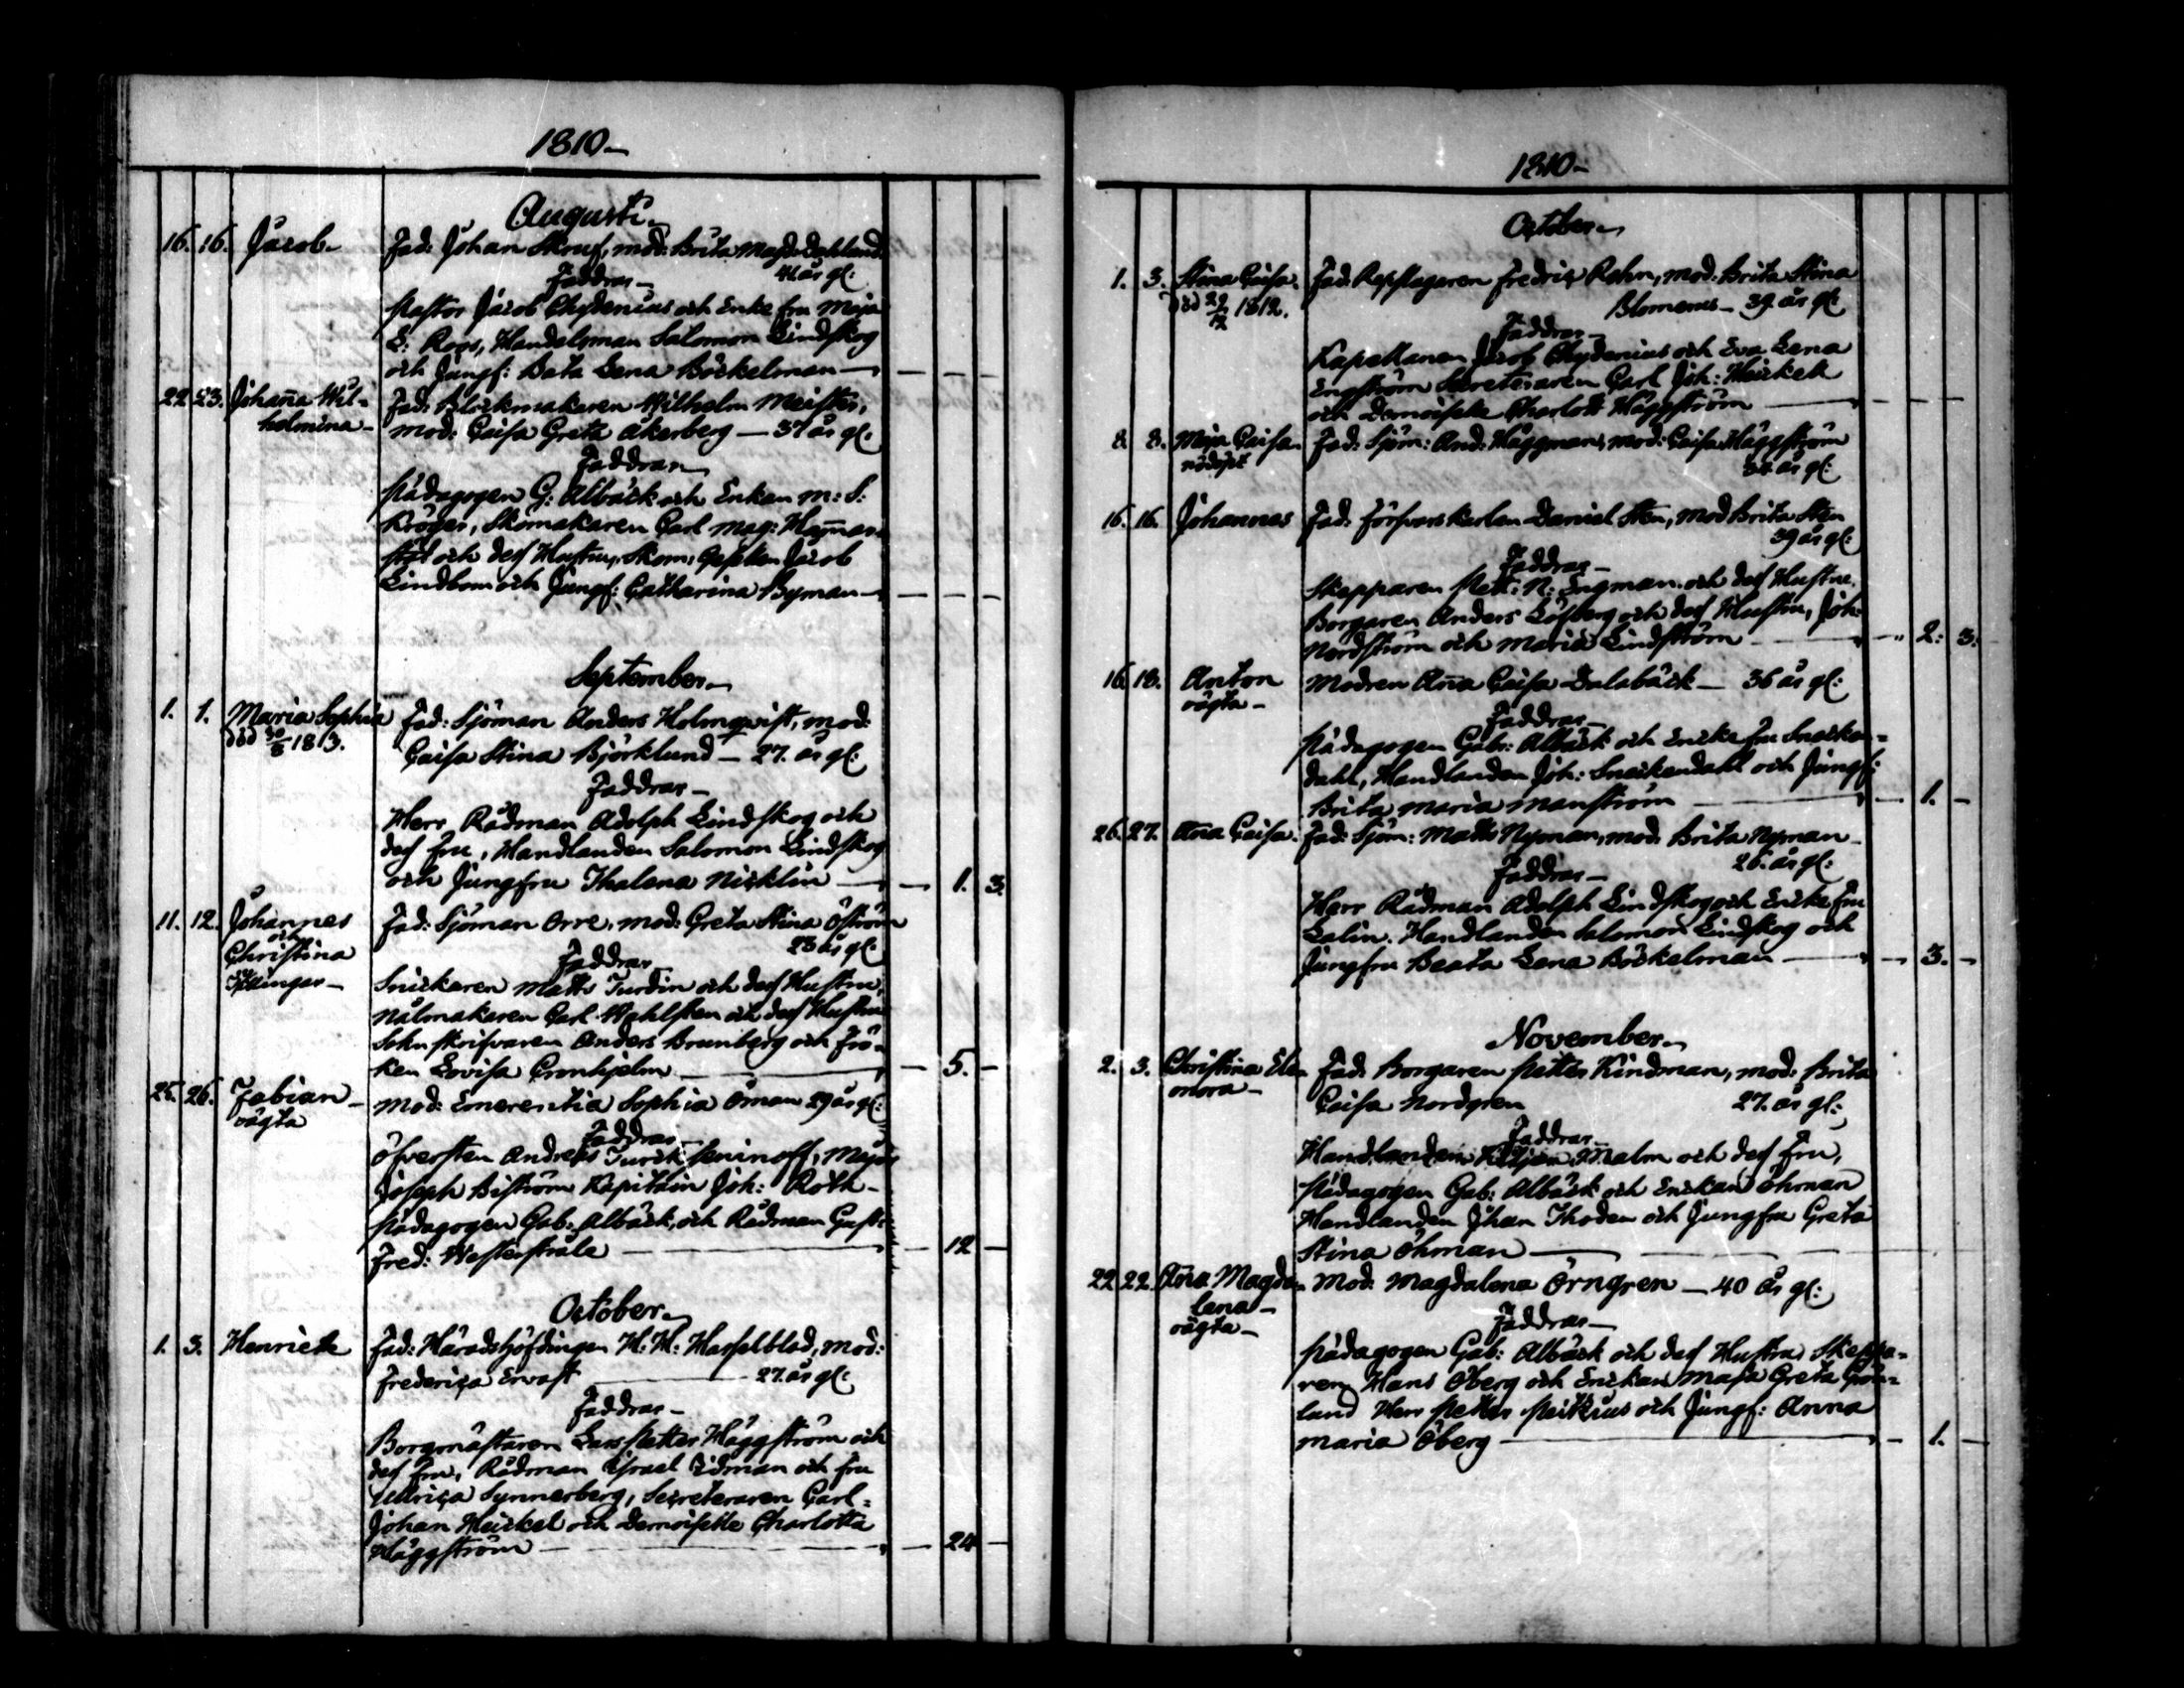 1810
Augusti
16. 16. Jacob Fad: Johan Skruf, mod: Brita Magd: Dahlund
41 år gl:
Faddrar
Pastor Jacob Chydenius och Enke fru Maja
L: Roos, Handelsman Salomon Lindskog
och Jungf: Beata Lena Böckelman
22 23. Johan̄a Wil- Fad: Blockmakaren Wilhelm Meister,
helmina mod: Caisa Greta Åkerberg — 37 år gl:
Faddrar
Pädagogen G: Albäck och Enkan M: S:
Kröger, Skomakaren Carl Mag:
och dess Hustru, Skom: Gesellen Jacob
Lindbom och Jungf: Catharina Byman
September
1. 1. Maria Sophia Fad: Sjöman Anders Holmqvist, mod:
död 30/8 1813. Caisa Stina Björklund — 27. år gl:
Faddrar
Herr Rådman Adolph Lindskog och
dess fru, Handlanden Salomon Lindskog
och Jungfru Thalena Nicklin — 1. 3.
11. 12. Johannes Fad: Sjöman Orre, mod: Greta Stina Öström
och 23 år gl:
Christina Faddrar
Tvillingar Snickaren Matts Turdin och dess Hustru,
Nålmakaren Carl Wahlsten och dess Hustru
Sokn skrifvaren Anders Brunberg och Frö-
ken Lovisa Cronhjelm — 5. —
25. 26. Fabian Mod: Emerentia Sophia Öman 29 år gl:
oägta Faddrar
Öfversten Andreas Major
Joseph Biström Kapitain Joh: Roth
Pädagogen Gab: Albäck, och Rådman Gust:
Fred: Westerstråle — 12 —
October
1. 3. Henriette Fad: Häradshöfdingen H: H: Hasselblad, mod:
Frederica Ervast — 27. år gl:
Faddrar
Borgmästaren Lars Petter Häggström och
dess fru, Rådman Israel Eidman och fru
Ullrica Synnerberg, Secreteraren Carl
Johan Heickel och Demoiselle Charlotta
Häggström — 24 —
1810
October
1. 3. Stina Caisa. Fad: Repslagaren Fredric Rehn, mod: Brita Stina
död 29/12 1812. Blomerus — 39. år gl:
Faddrar
Kapellanen Jacob Chydenius och Eva Lena
Engström Secreteraren Carl Joh: Heickell
och Demoiselle Charlott Häggström
8. 8. Maja Caisa. Fad: Sjöm: And: Häggman, mod: Caisa Häggström
nöddöpt 34 år gl:
16. 16. Johannes Fad: Försvarskarlen Daniel Sten, mod Brita Sten
39 år gl:
Faddrar
Skepparen Pett: N: Engman och dess Hustru,
Borgaren Anders Löfberg och dess Hustru, Joh:
Nordström och Maria Lindström — 2: 3:
16 18. Anton Modren An̄a Caisa Dalabäck — 36 år gl:
oägta Faddrar
Pädagogen Gabr: Albäck och Encke fru Snecken-
dahl, Handlanden Joh: Sneckendahl och Jungf:
Brita Maria Manström — 1. —
26. 27. An̄a Caisa. Fad: Sjöm: Matts Nyman, mod: Brita Nyman
26. år gl:
Faddrar
Herr Rådman Adolph Lindskog och Encke fru
Lalin. Handlanden Salomon Lindskog och
Jungfru Beata Lena Böckelman — 3. —
November
2. 3. Christina Ele- Fad: Borgaren Petter Kindman, mod: Brita
onora Caisa Nordgren 27. år gl:
Faddrar
Handlanden Malm och dess fru,
Pädagogen Gab: Albäck och Enckan Öhman
Handlanden Johan Thoden och Jungfru Greta
Stina Öhman
22 22. An̄a Magda- Mod: Magdalena Örngren — 40 år gl:
lena Faddrar
oägta Pädagogen Gab: Albäck och dess Hustru Skeppa-
ren Hans Öberg och Enckan Maja Greta Grön-
land Herr Petter och Jungf: Anna
Maria Öberg — 1. —